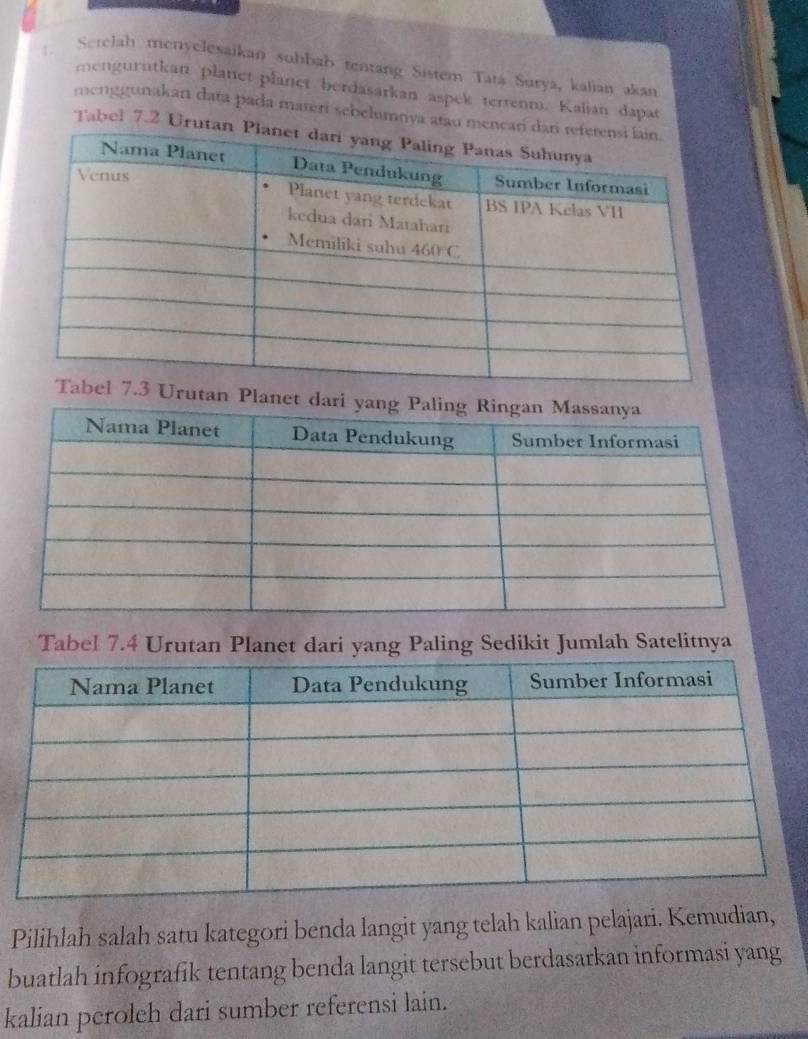 1. Setelah menyelesaikan subbab tentang Sistem Tata Surya, kalian akan
mengurutkan planet-planet berdasarkan aspek tertentu. Kalian dapat
menggunakan data pada materi sebelumnya atau mencari dari referensi lain.
Tabel 7.2 Urutan Planet dari yang Paling Panas Suhunya
Nama Planet Data Pendukung Sumber Informasi
Venus • Planet yang terdekat BS IPA Kelas VII
kedua dari Matahari
• Memiliki suhu 460°C
Tabel 7.3 Urutan Planet dari yang Paling Ringan Massanya
Nama Planet Data Pendukung Sumber Informasi
Tabel 7.4 Urutan Planet dari yang Paling Sedikit Jumlah Satelitnya
Nama Planet Data Pendukung Sumber Informasi
Pilihlah salah satu kategori benda langit yang telah kalian pelajari. Kemudian,
buatlah infografik tentang benda langit tersebut berdasarkan informasi yang
kalian peroleh dari sumber referensi lain.